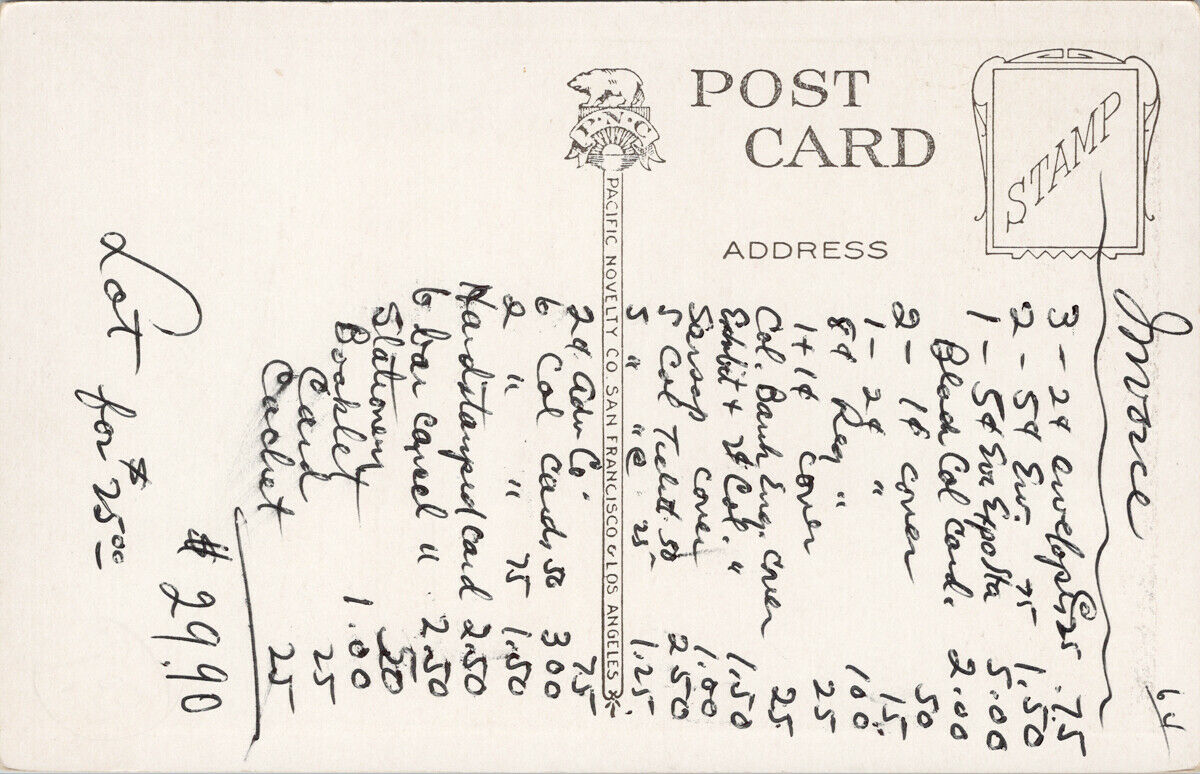 POST
CARD
STAMP
P.N.C.
ADDRESS
PACIFIC NOVELTY CO. SAN FRANCISCO & LOS ANGELES
Invoice
3 - 2¢ envelopes @ 25 .75
2 - 5¢ Env. 75 1.50
1 - 5¢ Env 5.00
Col Card. 2.00
2 - 1¢ cover 50
1 - 2¢ " 15
8¢ Reg " 1.00
1 + 1¢ cover 25
Col. Bank Eng. cover 25
Exhibit + 2¢ Col. " 1.50
cover 1.00
5 Col Tickets 50 2.50
5 " " @ 25 1.25
2¢ Adv Co 75
6 Col cards 50 3.00
2 " " 75 1.50
Handstamped Card 2.50
6 bar cancel " 2.50
Stationery 50
1.00
Card 25
Cachet 25
$ 29.90
Lot for $25.00